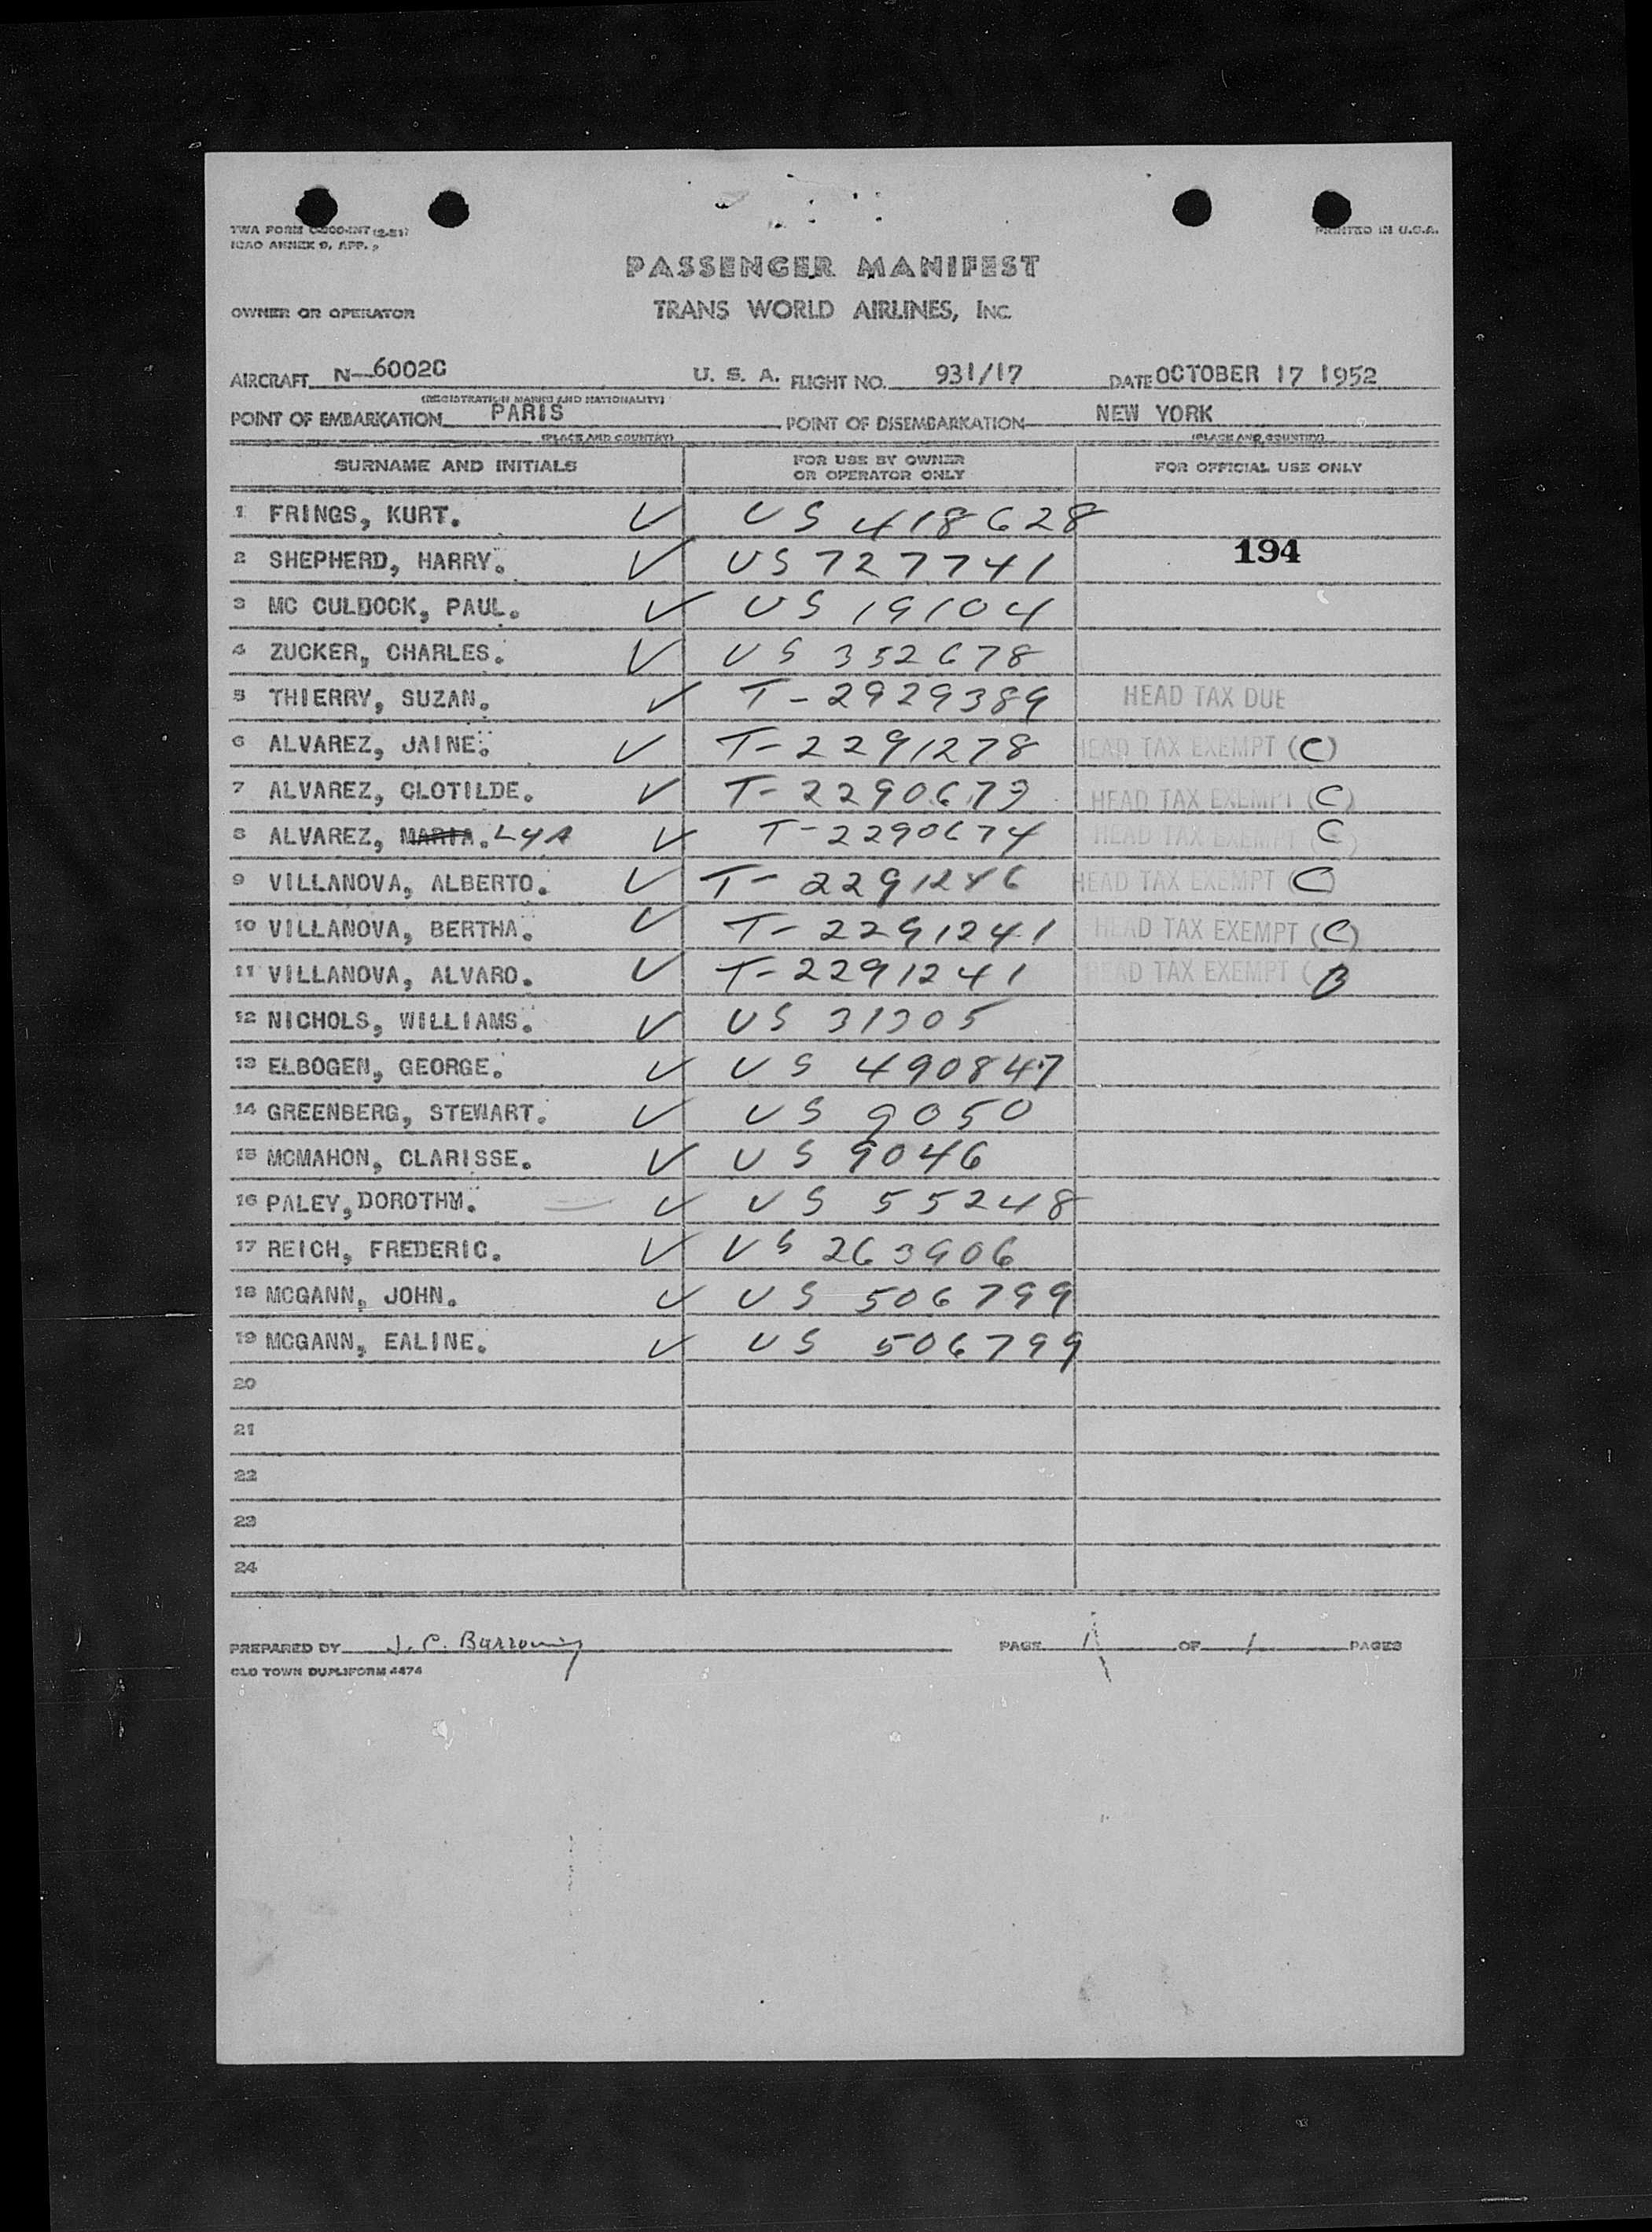 TWA FORM (2-51) PRINTED IN U.S.A.
ICAO ANNEX 9, APP.
PASSENGER MANIFEST
OWNER OR OPERATOR TRANS WORLD AIRLINES, INC.
AIRCRAFT N-6002C U. S. A. FLIGHT NO. 931/17 DATE OCTOBER 17 1952
(REGISTRATION MARKS AND NATIONALITY)
POINT OF EMBARKATION PARIS POINT OF DISEMBARKATION NEW YORK
(PLACE AND COUNTRY) (PLACE AND COUNTRY)
SURNAME AND INITIALS FOR USE BY OWNER OR OPERATOR ONLY FOR OFFICIAL USE ONLY
1 FRINGS, KURT. ✓ US 418628
2 SHEPHERD, HARRY. ✓ US 727741 194
3 MC CULDOCK, PAUL. ✓ US 19104
4 ZUCKER, CHARLES. ✓ US 352678
5 THIERRY, SUZAN. ✓ T-2929389 HEAD TAX DUE
6 ALVAREZ, JAINE. ✓ T-2291278 HEAD TAX EXEMPT (C)
7 ALVAREZ, CLOTILDE. ✓ T-2290673 HEAD TAX EXEMPT (C)
8 ALVAREZ, MARIA. LYA ✓ T-2290674 HEAD TAX EXEMPT (C)
9 VILLANOVA, ALBERTO. ✓ T-2291246 HEAD TAX EXEMPT (C)
10 VILLANOVA, BERTHA. ✓ T-2291241 HEAD TAX EXEMPT (C)
11 VILLANOVA, ALVARO. ✓ T-2291241 HEAD TAX EXEMPT (B
12 NICHOLS, WILLIAMS. ✓ US 31305
13 ELBOGEN, GEORGE. ✓ US 490847
14 GREENBERG, STEWART. ✓ US 9050
15 MCMAHON, CLARISSE. ✓ US 9046
16 PALEY, DOROTHM. ✓ US 55248
17 REICH, FREDERIC. ✓ US 263906
18 MCGANN, JOHN. ✓ US 506799
19 MCGANN, EALINE. ✓ US 506799
20
21
22
23
24
PREPARED BY J. C. PAGE 1 OF 1 PAGES
OLD TOWN DUPLIFORM 4474